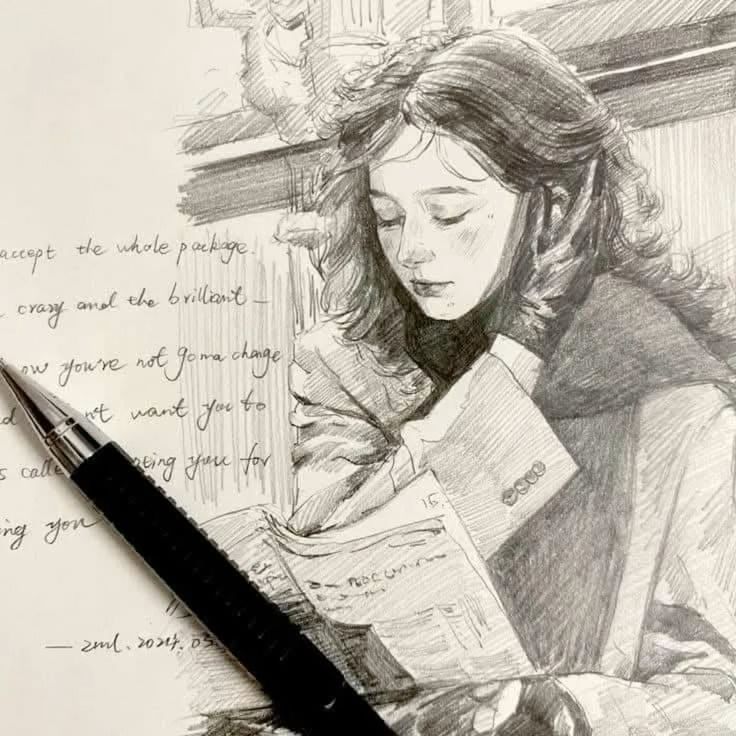 accept the whole package.
crazy and the brilliant —
ow you're not gonna change
n't want you to
s calle ting you for
ing you
— zml. 2024. 03
15.